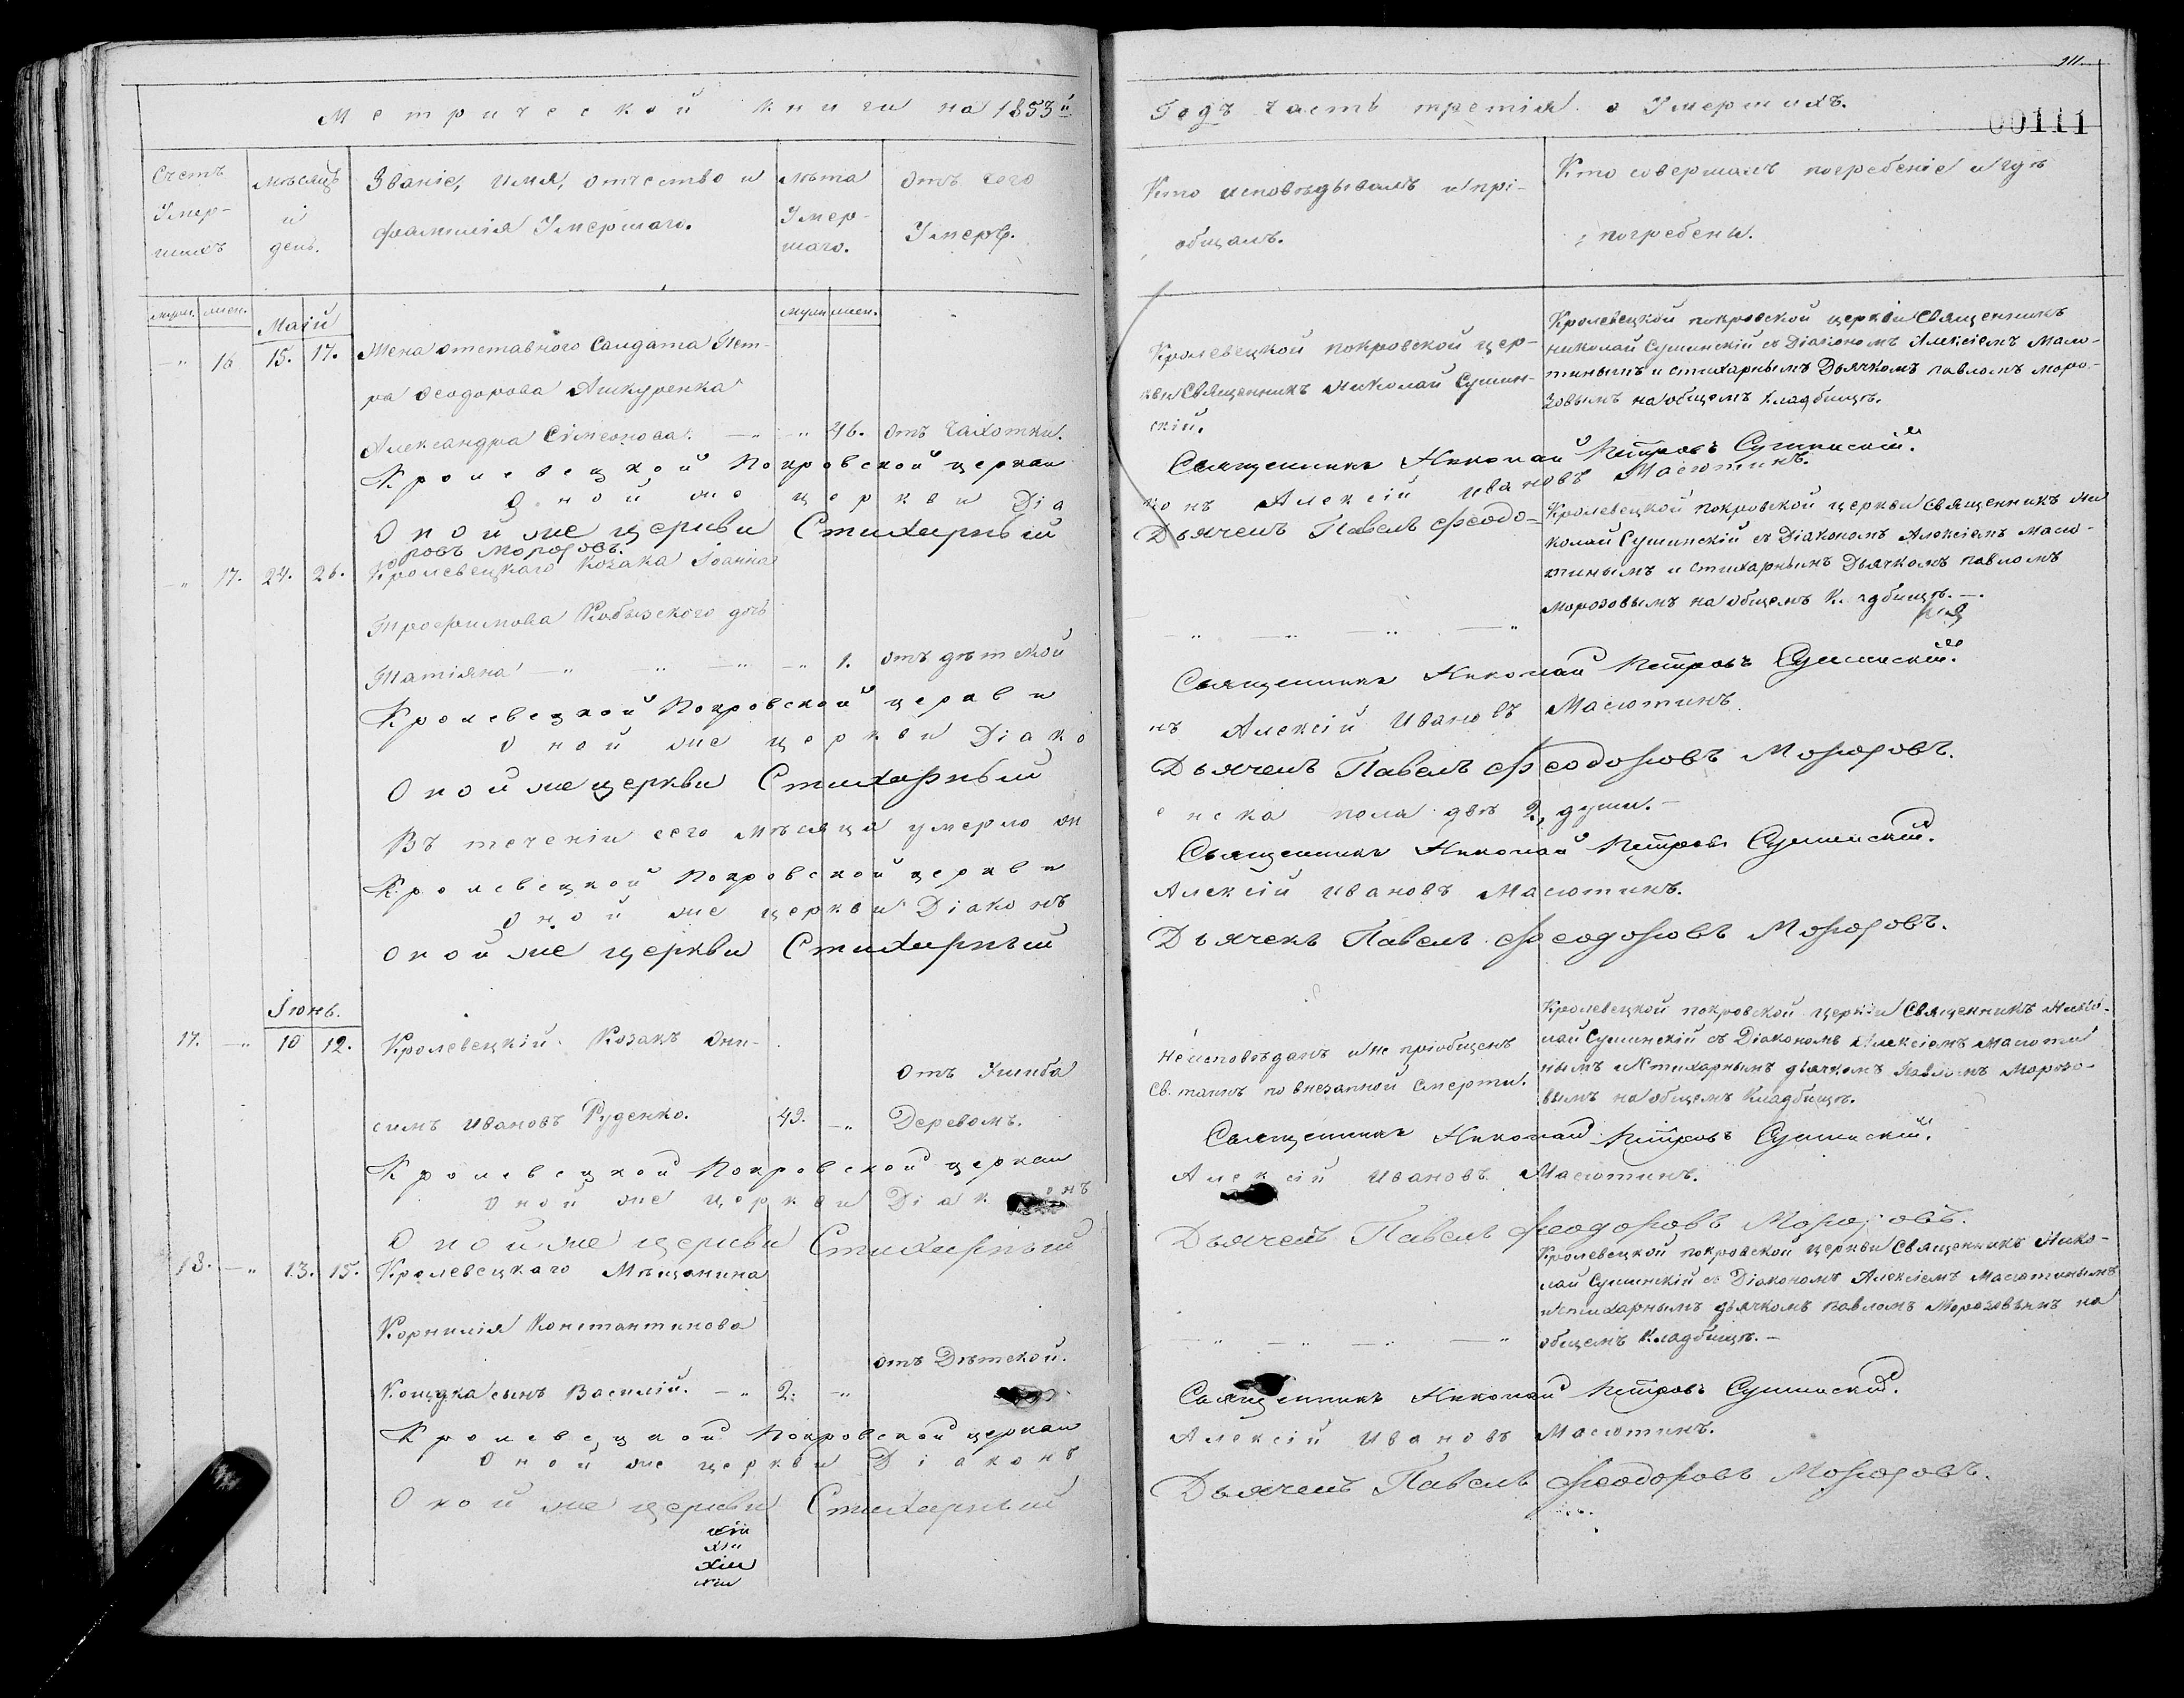 Метрической книги на 1853й
Годъ часть третія о Умершихъ.
00111
Счетъ Умер-шихъ
Мѣсяцъ и день.
Званіе, имя, отчество и
фамилія Умершаго.
лѣта Умер-шаго.
отъ чего Умеръ.
Кто исповѣдывалъ и прі-
общалъ.
Кто совершалъ погребеніе и гдѣ
погребены.
муж. жен.
Маій
муж. жен.
" 16 15. 17. Жена отставного Салдата Пет-
ра Феодорова
Александра Сімеонова. 46. отъ Чахотки.
Кролевецкой покровской цер-
кви Священникъ Николай Сушин-
скій.
Кролевецкой покровской церкви Священникъ
николай Сушинскій съ Діакономъ Алексіемъ Масю-
тинымъ и стихарнымъ Дьячкомъ павломъ Моро-
зовымъ на общемъ Кладбищѣ.
Кролевецкой Покровской церкви Священникъ Николай Петровъ Сушинскій.
Оной же церкви Діаконъ Алексій Ивановъ Масютинъ.
Оной же церкви Стихарный Дьячекъ Павелъ Феодо-
ровъ Морозовъ.
" 17. 24. 26. Кролевецкаго Козака Іоанна
Трофимова Кобызского дочь
Татіяна 1. отъ дѣтской
Кролевецкой покровской церкви Священникъ Ни
колай Сушинскій съ Діакономъ Алексіемъ Масю-
тинымъ и стихарнымъ Дьячкомъ павломъ
Морозовымъ на общемъ
Кролевецкой Покровской церкви Священникъ Николай Петровъ Сушинскій.
Оной же церкви Діаконъ Алексій Ивановъ Масютинъ.
Оной же церкви Стихарный Дьячекъ Павелъ Феодоровъ Морозовъ.
Въ теченіи сего мѣсяца умерло женска пола двѣ 2, души.
Кролевецкой Покровской церкви Священникъ Николай Петровъ Сушинскій.
Оной же церкви Діаконъ Алексій Ивановъ Масютинъ.
Оной же церкви Стихарный Дьячекъ Павелъ Феодоровъ Морозовъ.
Іюнь.
17. " 10 12. Кролевецкій Козакъ Они-
симъ Ивановъ Руденко. 49. " Отъ Ушиба
Деревомъ.
Неисповѣданъ и не пріобщенъ
Св. таинъ по внезапной смерти.
Кролевецкой покровской церкви Священникъ Нико-
лай Сушинскій съ Діакономъ Алексіемъ Масюти
нымъ и Стихарнымъ дьячкомъ Павломъ Морозо-
вымъ на общемъ Кладбищѣ.
Кролевецкой Покровской церкви Священникъ Николай Петровъ Сушинскій.
Оной же церкви Діаконъ Алексій Ивановъ Масютинъ.
Оной же церкви Стихарный Дьячекъ Павелъ Феодоровъ Морозовъ.
18. " 13. 15. Кролевецкаго Мѣщанина
Корнилія Константинова
сынъ Василій. 2. " отъ Дѣтской.
Кролевецкой покровской церкви Священникъ Нико-
лай Сушинскій съ Діакономъ Алексіемъ Масютинымъ
и Стихарнымъ дьячкомъ Павломъ Морозовымъ на
общемъ Кладбищѣ.
Кролевецкой Покровской церкви Священникъ Николай Петровъ Сушинскій.
Оной же церкви Діаконъ Алексій Ивановъ Масютинъ.
Оной же церкви Стихарный Дьячекъ Павелъ Феодоровъ Морозовъ.